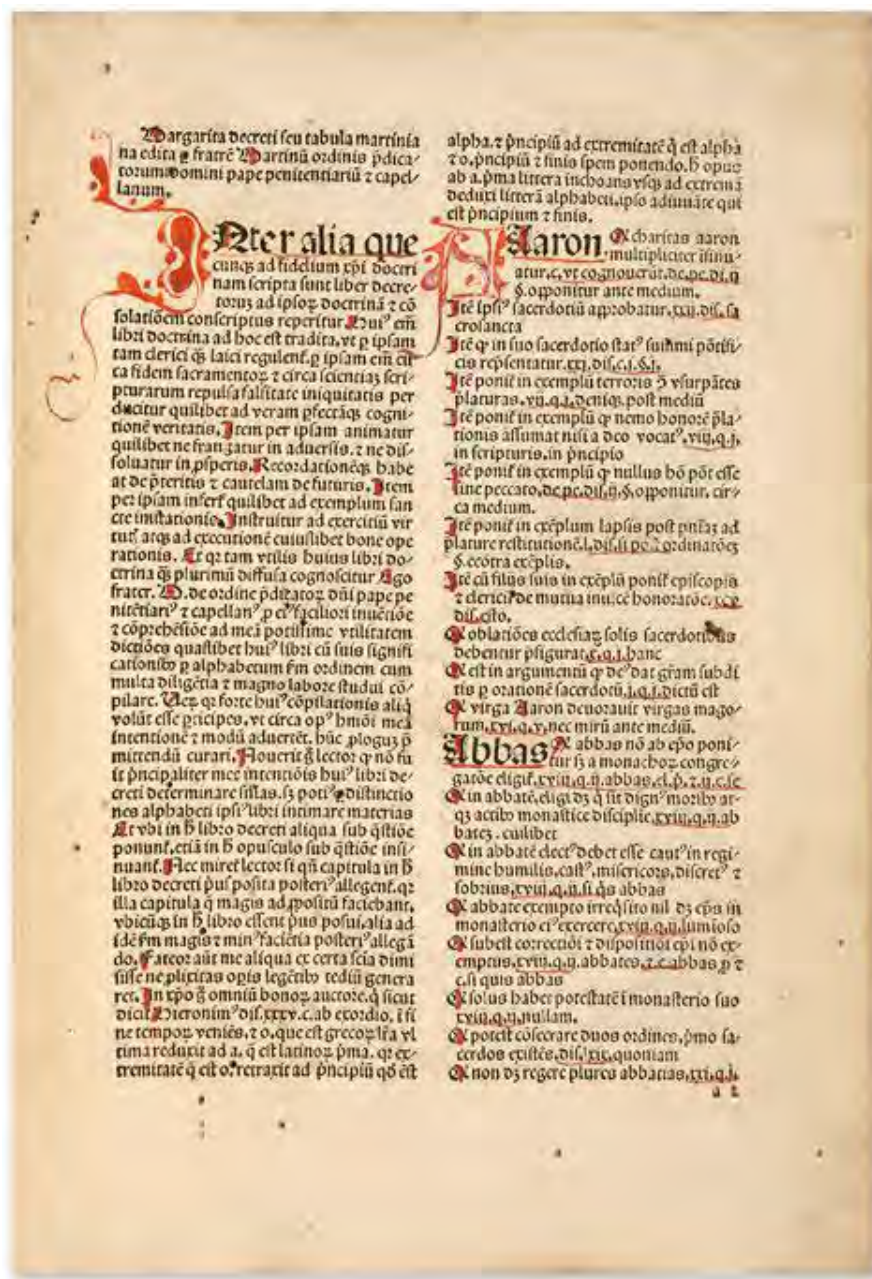 Margarita decreti seu tabula martinia
na edita ꝑ fratrē Martinū ordinis p̄dica⸗
torum domini pape penitentiariū ⁊ capel⸗
lanum.
INter alia que
cunqꝫ ad fidelium xp̄i doctri
nam scripta sunt liber decre⸗
torum ad ipsoꝝ doctrinā ⁊ cō
solatiōem conscriptus reperitur. Huiꝰ em̄
libri doctrina ad hoc est tradita, vt ꝑ ipsam
tam clerici qꝫ laici regulent᷑. ꝑ ipsam em̄ cir
ca fidem sacramentoꝝ ⁊ circa scientiaꝫ scri⸗
pturarum repulsa falsitate iniquitatis per
ducitur quilibet ad veram ꝑfectāqꝫ cogni⸗
tionē veritatis. Item per ipsam animatur
quilibet ne frangatur in aduersis. ⁊ ne dis⸗
soluatur in ꝓsperis. Recordationēqꝫ habe
at de p̄teritis ⁊ cautelam de futuris. Item
per ipsam infert᷑ quilibet ad exemplum san
cte imitationis. Instruitur ad exercitiū vir
tut᷑ atqꝫ ad executionē cuiuslibet bone ope
rationis. Et qꝛ tam vtilis huius libri do⸗
ctrina qꝫ plurimū diffusa cognoscitur Ego
frater. M. de ordine p̄dicatoꝝ dn̄i pape pe
nitētiariꝰ ⁊ capellanꝰ ꝓ eiꝰ faciliori inuētiōe
⁊ cōprehēsiōe ad meā potissime vtilitatem
dictiōes quaslibet huiꝰ libri cū suis signifi
cationibꝰ ꝑ alphabetum ẜm ordinem cum
multa diligētia ⁊ magno labore studui cō⸗
pilare. Ueꝝ qꝛ forte huiꝰ cōpilationis aliq̄
volūt esse ꝑticipes, vt circa opꝰ hmōi meā
intentionē ⁊ modū aduertēt. hūc ꝓloguꝫ p̄
mittendū curari. Nouerit g̊ lector ꝙ nō fu
it p̄ncipaliter mee intentiōis huiꝰ libri de⸗
creti determinare sillas. sꝫ potiꝰ distinctio
nes alphabeti ipsiꝰ libri intimare materias
Et vbi in h̄ libro decreti aliqua sub q̄stiōe
ponunt᷑, etiā in h̄ opusculo sub q̄stiōe insi⸗
nuant᷑. Nec miret᷑ lector si qn̄ capitula in h̄
libro decreti p̄us posita posteriꝰ allegent᷑. qꝛ
illa capitula q̄ magis ad ꝓpositū faciebant,
vbicūqꝫ in h̄ libro essent p̄us posui, alia ad
idē ẜm magis ⁊ minꝰ faciētia posteriꝰ allegā
do. Fateor aūt me aliqua ex certa sc̄ia dimi
sisse ne ꝓlixitas opis legētibꝰ tediū genera
ret. In xp̄o g̊ omniū bonoꝝ auctore. q̄ sicut
dicit Hieronimꝰ dis. xxxv. c. ab exordio. ī fi
ne tempoꝝ veniēs, ⁊ o. que est grecoꝝ lr̄a vl
tima reduxit ad a. q̄ est latinoꝝ p̄ma. qꝛ ex⸗
tremitatē q̄ est o. retraxit ad p̄ncipiū qd̄ est
alpha. ⁊ p̄ncipiū ad extremitatē q̄ est alpha
⁊ o. p̄ncipiū ⁊ finis spem ponendo. h̄ opus
ab a. p̄ma littera inchoans vsqꝫ ad extremā
deduxi litterā alphabeti. ipso adiuuāte qui
est p̄ncipium ⁊ finis.
AAaron Q̄ charitas aaron
multipliciter īsinu⸗
atur. c. vt cognouerūt. de pe. di. ij
§. opponitur ante medium.
Itē ipsiꝰ sacerdotiū approbatur. xxij. dis. sa
crosancta
Itē ꝙ in suo sacerdotio statꝰ summi pōtifi⸗
cis rep̄sentatur. xxj. dis. c. j. §. j.
Itē ponit᷑ in exemplū terroris ꝯ vsurpātes
p̄laturas. vij. q. j. deniqꝫ. post mediū
Itē ponit᷑ in exemplū ꝙ nemo honorē p̄la⸗
tionis assumat nisi a deo vocatꝰ. viij. q. j.
in scripturis. in p̄ncipio
Itē ponit᷑ in exemplū ꝙ nullus hō pōt esse
sine peccato. de pe. dis. ij. §. opponitur. cir⸗
ca medium.
Itē ponit᷑ in exēplum lapsis post pn̄iaꝫ ad
p̄lature restitutionē. l. dis. si po. ⁊ ordinatōeꝫ
§. econtra exēplis.
Itē cū filijs suis in exēplū ponit᷑ episcopis
⁊ clericis de mutua inuicē honoratōe. xcv.
dis. esto.
Q̄ oblatiōes ecclesiaꝝ solis sacerdotibus
debentur p̄figurat᷑. x. q. j. hanc
Q̄ est in argumentū ꝙ deꝰ dat gr̄am subdi
tis ꝑ orationē sacerdotū. j. q. j. dictū est
Q̄ virga Aaron deuorauit virgas mago⸗
rum. xvj. q. v. nec mirū ante mediū.
Abbas Q̄ abbas nō ab ep̄o poni⸗
tur sꝫ a monachoꝝ congre⸗
gatōe eligit᷑. xviij. q. ij. abbas. el. p̄. ⁊. ij. c. se
Q̄ in abbatē. eligi dꝫ q̄ sit dignꝰ moribꝰ at⸗
qꝫ actibꝰ monastice discipline. xviij. q. ij. ab
bateꝫ. cuilibet
Q̄ in abbatē electꝰ debet esse cautꝰ in regi⸗
mine humilis, castꝰ, misericors, discretꝰ ⁊
sobrius. xviij. q. ij. si q̄s abbas
Q̄ abbate exempto irreq̄sito nil dꝫ ep̄s in
monasterio eiꝰ exercere. xviij. q. ij. luminoso
Q̄ subest correctiōi ⁊ dispositiōi ep̄i nō ex⸗
emptus. xviij. q. ij. abbates. ⁊. c. abbas p̄ ⁊
c. si quis abbas
Q̄ solus habet potestatē ī monasterio suo
xviij. q. ij. nullam.
Q̄ potest cōsecrare duos ordines. p̄mo sa⸗
cerdos existēs. dis. lxix. quoniam
Q̄ non dꝫ regere plures abbatias. xxj. q. j.
a 2